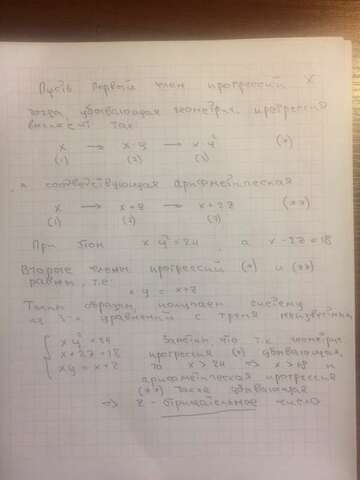 Пусть первый член прогрессий x
тогда убывающая геометрич. прогрессия
выглядит так:
x → x·y → x·y² (*)
(1) (2) (3)
а соответствующая арифметическая
x → x+z → x+2z (**)
(1) (2) (3)
При этом xy²=24, а x-2z=18
Вторые члены прогрессий (*) и (**)
равны, т.е.
xy = x+z
Таким образом, получаем систему
из 3-х уравнений с тремя неизвестными
{ xy²=24 Заметим, что т.к. геометрич
x+2z=18 прогрессия (*) убывающая,
xy=x+z то x>24 ⇒ x>18 и
арифметическая прогрессия
(**) также убывающая
⇒ z - отрицательное число